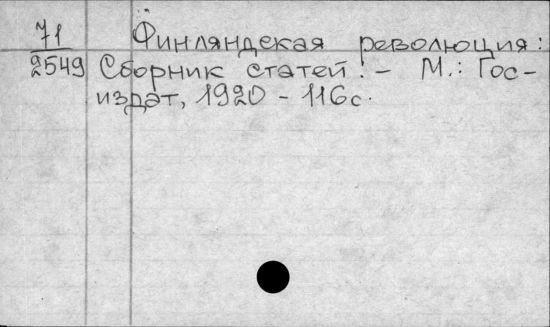 71 Финляндская революция:
2549 Сборник статей. - М.: Гос-
издат, 1920 - 116 с.